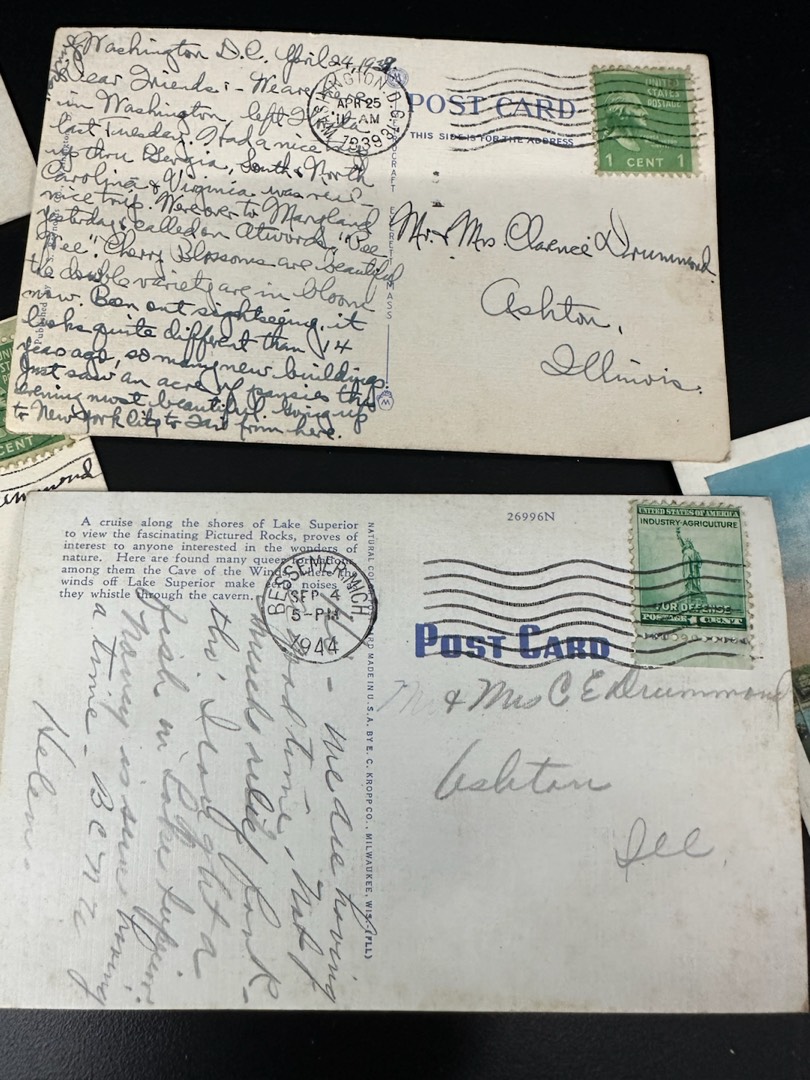 Washington D.C. April 24, 1939
Dear Friends:- We are here
in Washington, left
last Tuesday. Had a nice
up thru Georgia, South & North
Carolina & Virginia was
nice trip. Were over to Maryland
yesterday & called on Atwoods. "See
Tree". Cherry Blossoms are beautiful
the double variety are in bloom
now. Been out sightseeing, it
looks quite different than 14
years ago, so many new buildings.
Just saw an acre of pansies this
evening most beautiful. Going up
to New York City to Fair from here.
WASHINGTON D.C.
APR 25
11 AM
1939
POST CARD
THIS SIDE IS FOR THE ADDRESS
UNITED
STATES
POSTAGE
1 CENT 1
Mr. & Mrs. Clarence Drummond.
Ashton,
Illinois.
Published by
EVERETT MASS
CENT
A cruise along the shores of Lake Superior
to view the fascinating Pictured Rocks, proves of
interest to anyone interested in the wonders of
nature. Here are found many queer formations
among them the Cave of the Winds where the
winds off Lake Superior make noises
they whistle through the cavern.
26996N
BESSEMER MICH
SEP 4
5-PM
1944
POST CARD
UNITED STATES OF AMERICA
INDUSTRY-AGRICULTURE
FOR DEFENSE
POSTAGE 1 CENT
MADE IN U.S.A. BY E. C. KROPP CO., MILWAUKEE, WIS. (FLL)
Mr & Mrs C E Drummond
Ashton
Ill
- We are having
good time - Not
much relief from
this. I caught a
fish in Lake Superior.
Nancy is sure having
a time - B C N U
Helen.